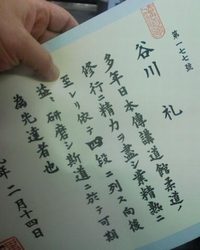 第一七七號
谷川 礼
多年日本傳講道館柔道ノ
修行ニ精力ヲ盡シ業精熟ニ
至レリ依テ四段ニ列ス向後
益々研磨シ斯道ニ於テ可期
為先達者也
年二月十四日